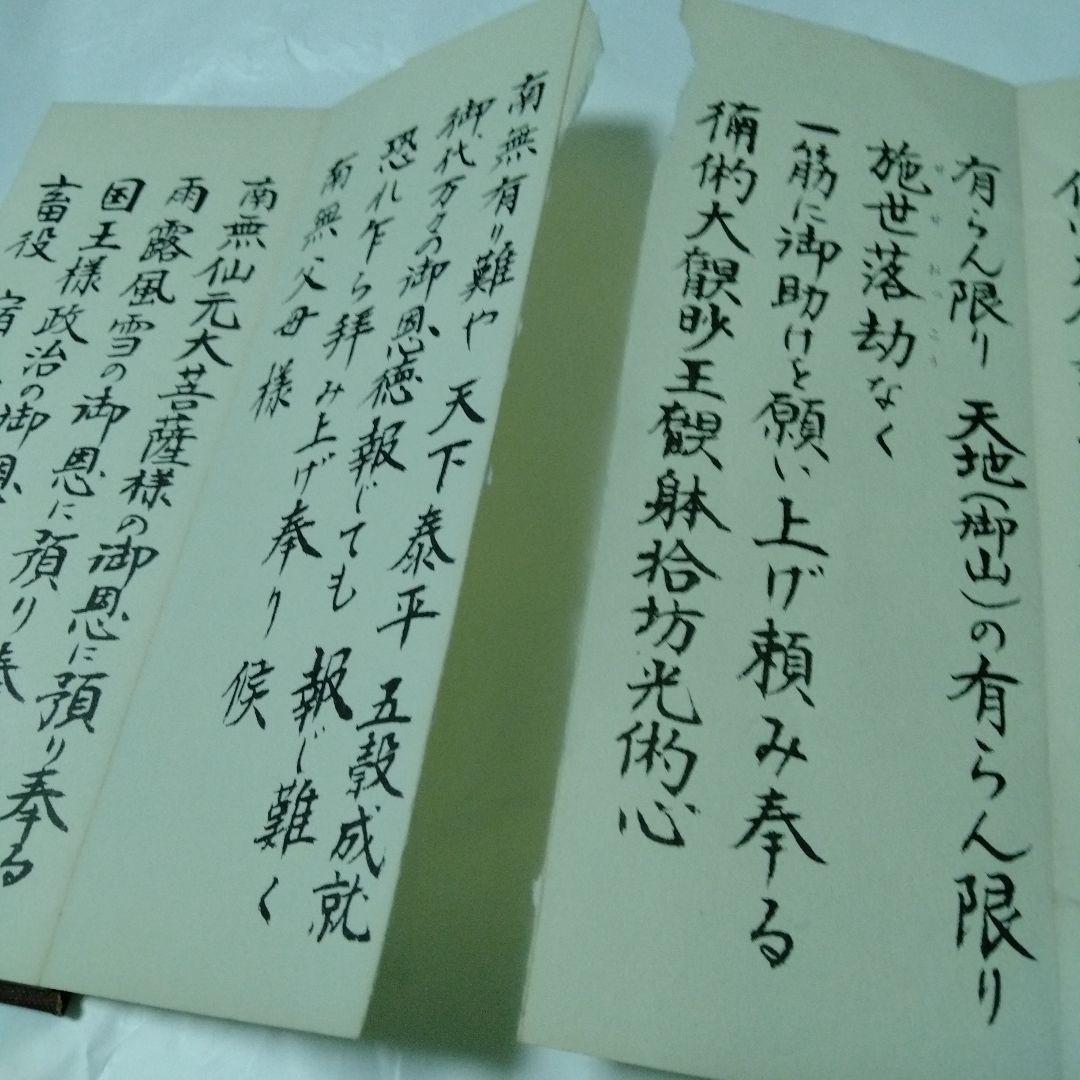 有らん限り 天地(御山)の有らん限り
施世落劫なく
せ せ おっ こう
一筋に御助けと願い上げ頼み奉る
大王躰拾坊光心
南無有り難や 天下泰平 五穀成就
御代万々の御恩徳報じても 報じ難く
恐れ乍ら拝み上げ奉り候
南無父母様
南無仙元大菩薩様の御恩に預り奉る
雨露風雪の御恩に預り
国王様政治の御恩
畜役